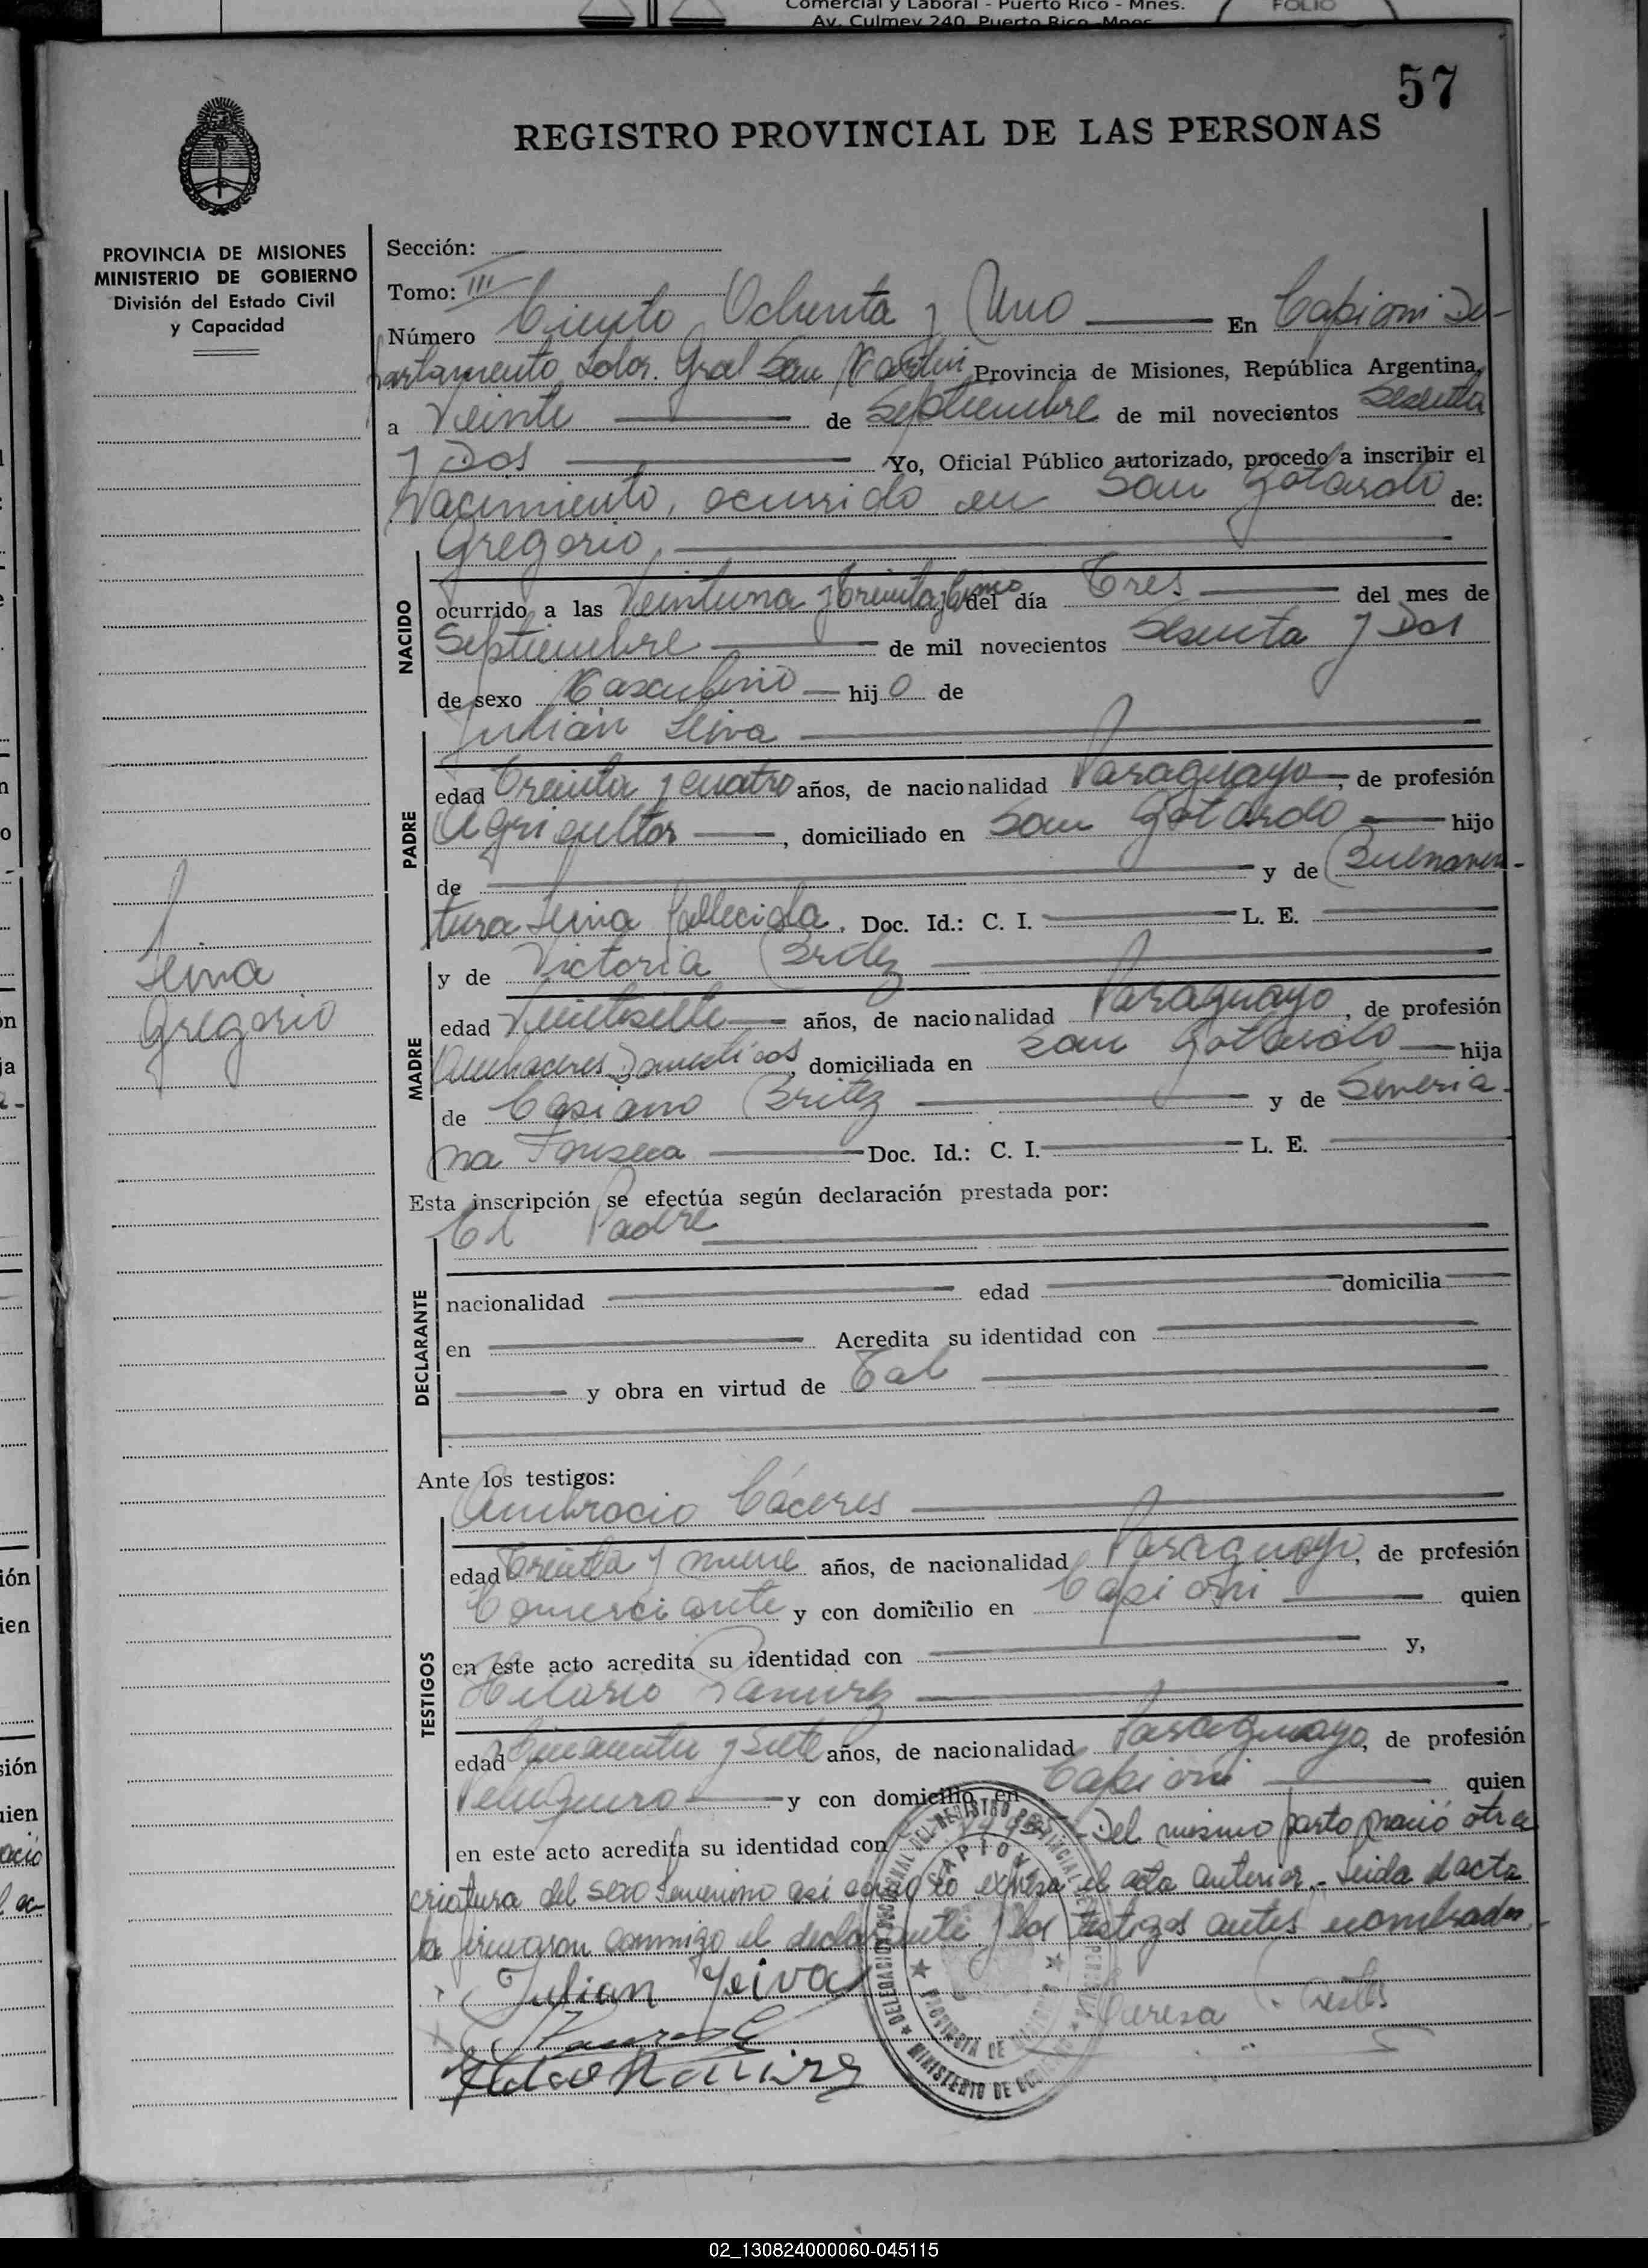 Comercial y Laboral - Puerto Rico - Mnes.
Av. Culmey 240 Puerto Rico - Mnes
FOLIO
57
REGISTRO PROVINCIAL DE LAS PERSONAS
PROVINCIA DE MISIONES
MINISTERIO DE GOBIERNO
División del Estado Civil
y Capacidad
Leiva
Gregorio
Sección:
Tomo: III
Número Ciento Ochenta y Uno En Capiovi De-
partamento Ldor. Gral San Martin Provincia de Misiones, República Argentina,
a Veinte de Septiembre de mil novecientos Sesenta
y Dos Yo, Oficial Público autorizado, procedo a inscribir el
Nacimiento, ocurrido en San Gotardo de:
Gregorio
NACIDO
ocurrido a las Veintiuna y treinta y cinco del día Tres del mes de
Septiembre de mil novecientos Sesenta y Dos
de sexo Masculino hijo de
Julián Leiva
PADRE
edad Treinta y cuatro años, de nacionalidad Paraguayo, de profesión
Agricultor, domiciliado en San Gotardo hijo
de y de Buenaven-
tura Leiva fallecida. Doc. Id.: C. I. L. E.
y de Victoria Britez
MADRE
edad Veintisiete años, de nacionalidad Paraguayo, de profesión
Quehaceres Domesticos, domiciliada en San Gotardo hija
de Casiano Britez y de Severia-
na Fonseca Doc. Id.: C. I. L. E.
Esta inscripción se efectúa según declaración prestada por:
El Padre
DECLARANTE
nacionalidad edad domicilia
en Acredita su identidad con
y obra en virtud de Tal
Ante los testigos:
Ambrocio Cáceres
TESTIGOS
edad Treinta y nueve años, de nacionalidad Paraguayo, de profesión
Comerciante y con domicilio en Capiovi quien
en este acto acredita su identidad con y,
Hilario Ramirez
edad Cincuenta y Siete años, de nacionalidad Paraguayo, de profesión
Peluquero y con domicilio en Capiovi quien
en este acto acredita su identidad con Del mismo parto nació otra
criatura del sexo femenino asi como lo expresa el acta anterior.- Leida el acta
la firmaron conmigo el declarante y los testigos antes nombrados.-
Julian Leiva
Teresa
Hilario Ramirez
CAPIOVI
PROVINCIA DE MISIONES
MINISTERIO DE GOBIERNO
02_130824000060-045115